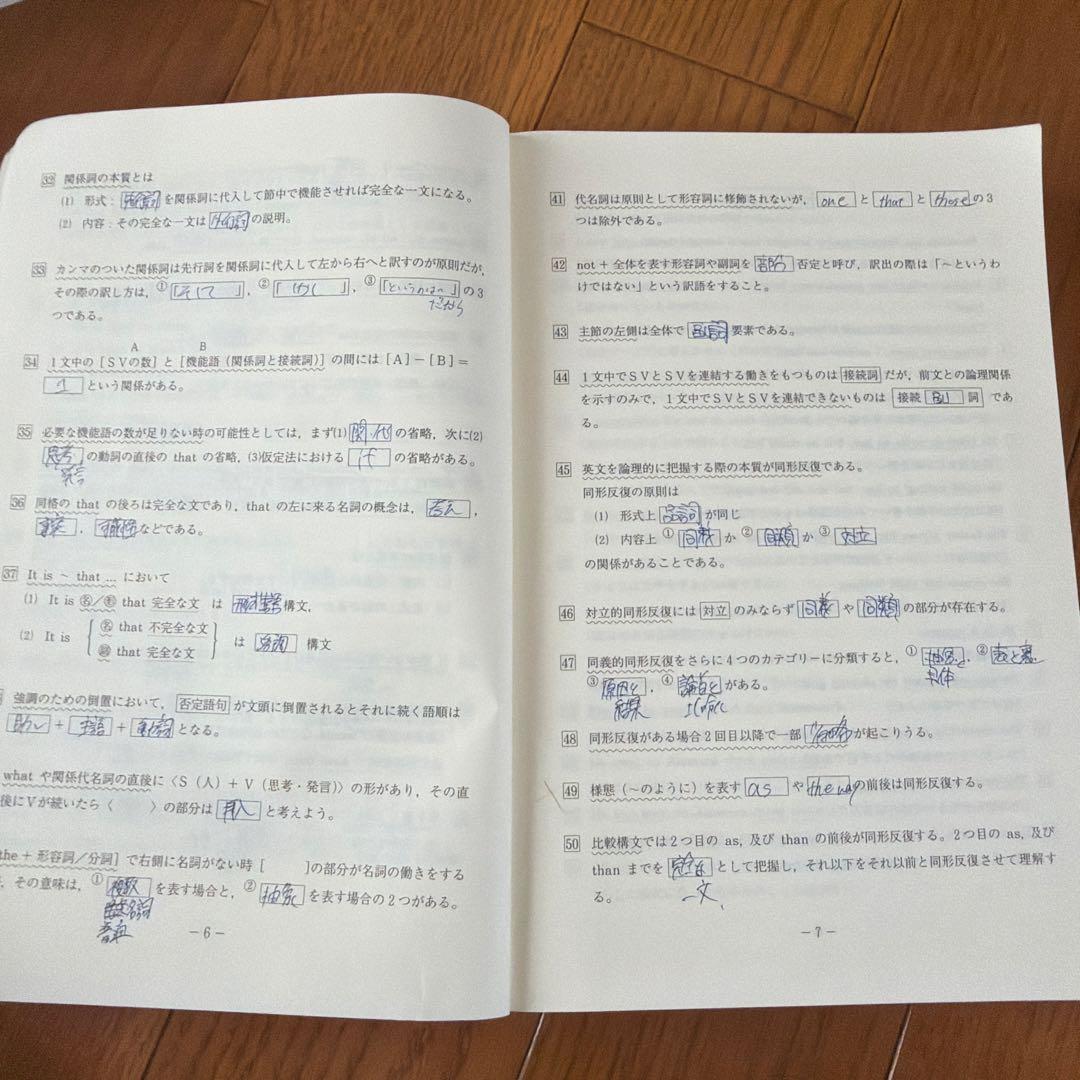 32 関係詞の本質とは
(1) 形式：先行詞を関係詞に代入して節中で機能させれば完全な一文になる。
(2) 内容：その完全な一文は先行詞の説明。
33 カンマのついた関係詞は先行詞を関係詞に代入して左から右へと訳すのが原則だが，
その際の訳し方は，①「そして」，②「しかし」，③「というのは〜」の3
だから
つである。
A B
34 1文中の［SVの数］と［機能語（関係詞と接続詞）］の間には［A］−［B］＝
1 という関係がある。
35 必要な機能語の数が足りない時の可能性としては，まず(1) 関・代 の省略，次に(2)
思考 の動詞の直後の that の省略，(3)仮定法における if の省略がある。
発言
36 同格の that の後ろは完全な文であり，that の左に来る名詞の概念は，
事実，可能性などである。
37 It is 〜 that … において
(1) It is 名／形 that 完全な文 は 構文，
(2) It is 名 that 不完全な文 は 強調 構文
副 that 完全な文
強調のための倒置において，否定語句 が文頭に倒置されるとそれに続く語順は
＋ 主語 ＋ 動詞 となる。
what や関係代名詞の直後に〈S（人）＋V（思考・発言）〉の形があり，その直
後にVが続いたら〈 〉の部分は 挿入 と考えよう。
the＋形容詞／分詞］で右側に名詞がない時［ ］の部分が名詞の働きをする
，その意味は，① 複数 を表す場合と，② 抽象 を表す場合の2つがある。
普通名詞
−6−
41 代名詞は原則として形容詞に修飾されないが，one と that と those の3
つは除外である。
42 not＋全体を表す形容詞や副詞を 部分 否定と呼び，訳出の際は「〜というわ
けではない」という訳語をすること。
43 主節の左側は全体で 副詞 要素である。
44 1文中でSVとSVを連結する働きをもつものは 接続詞 だが，前文との論理関係
を示すのみで，1文中でSVとSVを連結できないものは 接続 副 詞 であ
る。
45 英文を論理的に把握する際の本質が同形反復である。
同形反復の原則は
(1) 形式上 品詞 が同じ
(2) 内容上 ① 同義 か ② 同類 か ③ 対立
の関係があることである。
46 対立的同形反復には 対立 のみならず 同義 や 同類 の部分が存在する。
47 同義的同形反復をさらに4つのカテゴリーに分類すると，① 抽象と，② 表と裏，
具体
③ 原因と，④ 論旨と がある。
結果 比喩
48 同形反復がある場合2回目以降で一部 省略 が起こりうる。
49 様態（〜のように）を表す as や the way の前後は同形反復する。
50 比較構文では2つ目の as, 及び than の前後が同形反復する。2つ目の as, 及び
than までを 完全な として把握し，それ以下をそれ以前と同形反復させて理解す
文，
る。
−7−